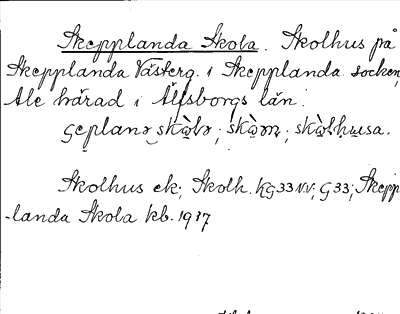 Skepplanda Skola. Skolhus på
Skepplanda Västerg. i Skepplanda socken,
Ale härad i Älfsborgs län.
Skolhus ek; Skolh. KG33 N.V; G33; Skepp
-landa Skola kb. 1937